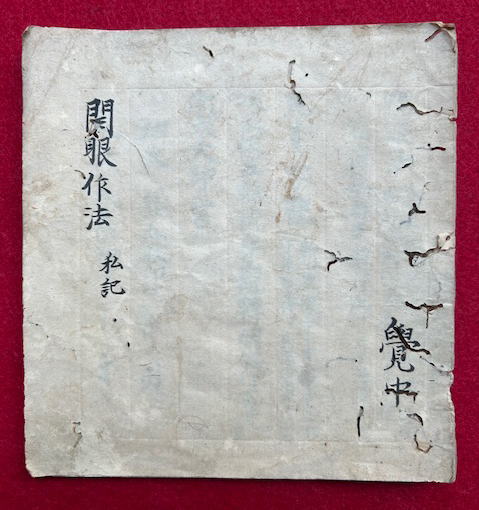 覺中
開眼作法
私記